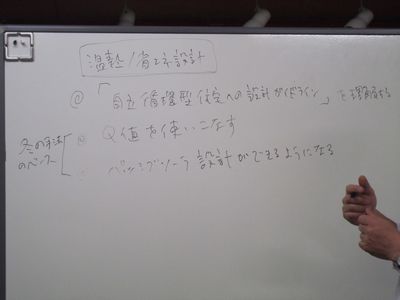 温熱/省エネ設計
@「自立循環型住宅への設計ガイドライン」を理解する
@ Q値を使いこなす
パッシブソーラ設計ができるようになる
冬の手法
の